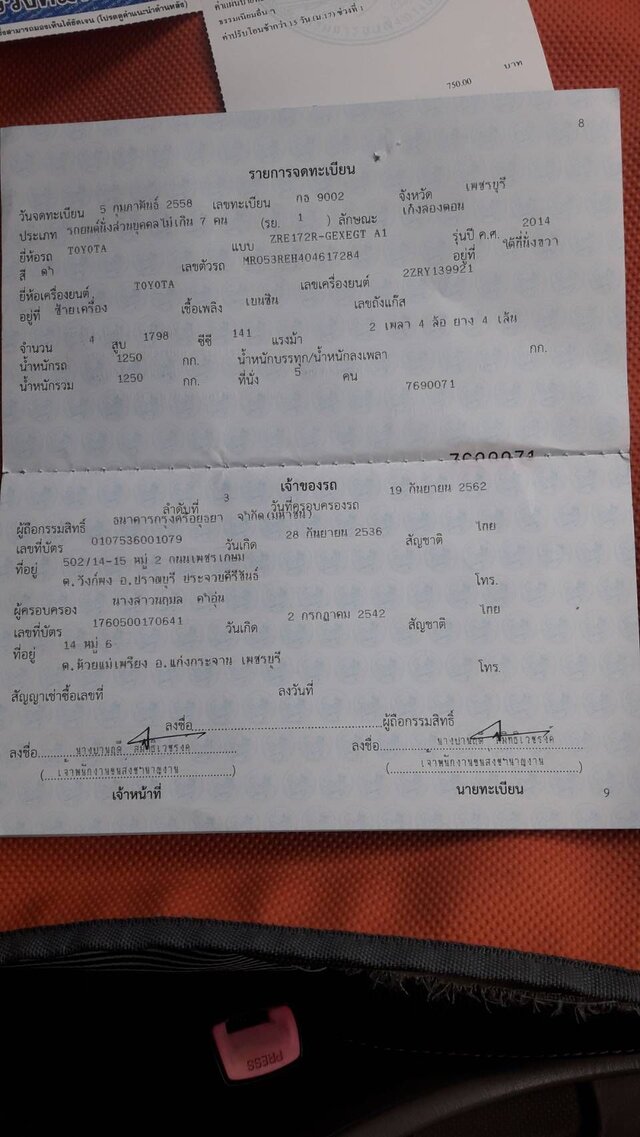 ซึ่งสามารถมองเห็นได้ชัดเจน (โปรดดูคำแนะนำด้านหลัง)
ธรรมเนียมอื่นๆ
ค่าปรับโอนช้ากว่า 15 วัน (ม.17) ช่วงที่ 1
บาท
750.00
8
รายการจดทะเบียน
วันจดทะเบียน 5 กุมภาพันธ์ 2558 เลขทะเบียน กธ 9002 จังหวัด เพชรบุรี
ประเภท รถยนต์นั่งส่วนบุคคลไม่เกิน 7 คน (รย. 1 ) ลักษณะ เก๋งสองตอน
ยี่ห้อรถ TOYOTA แบบ ZRE172R-GEXEGT A1 รุ่นปี ค.ศ. 2014
สี ดำ เลขตัวรถ MR053REH404617284 อยู่ที่ ใต้ที่นั่งขวา
ยี่ห้อเครื่องยนต์ TOYOTA เลขเครื่องยนต์ 2ZRY139921
อยู่ที่ ซ้ายเครื่อง เชื้อเพลิง เบนซิน เลขถังแก๊ส
จำนวน 4 สูบ 1798 ซีซี 141 แรงม้า 2 เพลา 4 ล้อ ยาง 4 เส้น
น้ำหนักรถ 1250 กก. น้ำหนักบรรทุก/น้ำหนักลงเพลา กก.
น้ำหนักรวม 1250 กก. ที่นั่ง 5 คน 7690071
7690071
เจ้าของรถ
ลำดับที่ 3 วันที่ครอบครองรถ 19 กันยายน 2562
ผู้ถือกรรมสิทธิ์ ธนาคารกรุงศรีอยุธยา จำกัด(มหาชน)
เลขที่บัตร 0107536001079 วันเกิด 28 กันยายน 2536 สัญชาติ ไทย
ที่อยู่ 502/14-15 หมู่ 2 ถนนเพชรเกษม
ต.วังก์พง อ.ปราณบุรี ประจวบคีรีขันธ์ โทร.
ผู้ครอบครอง นางสาวนฤมล คำอุ่น
เลขที่บัตร 1760500170641 วันเกิด 2 กรกฎาคม 2542 สัญชาติ ไทย
ที่อยู่ 14 หมู่ 6
ต.ห้วยแม่เพรียง อ.แก่งกระจาน เพชรบุรี โทร.
สัญญาเช่าซื้อเลขที่ ลงวันที่
ลงชื่อ ผู้ถือกรรมสิทธิ์
ลงชื่อ ลงชื่อ
(เจ้าพนักงานขนส่งชำนาญงาน) (เจ้าพนักงานขนส่งชำนาญงาน)
เจ้าหน้าที่ นายทะเบียน
9
PRESS